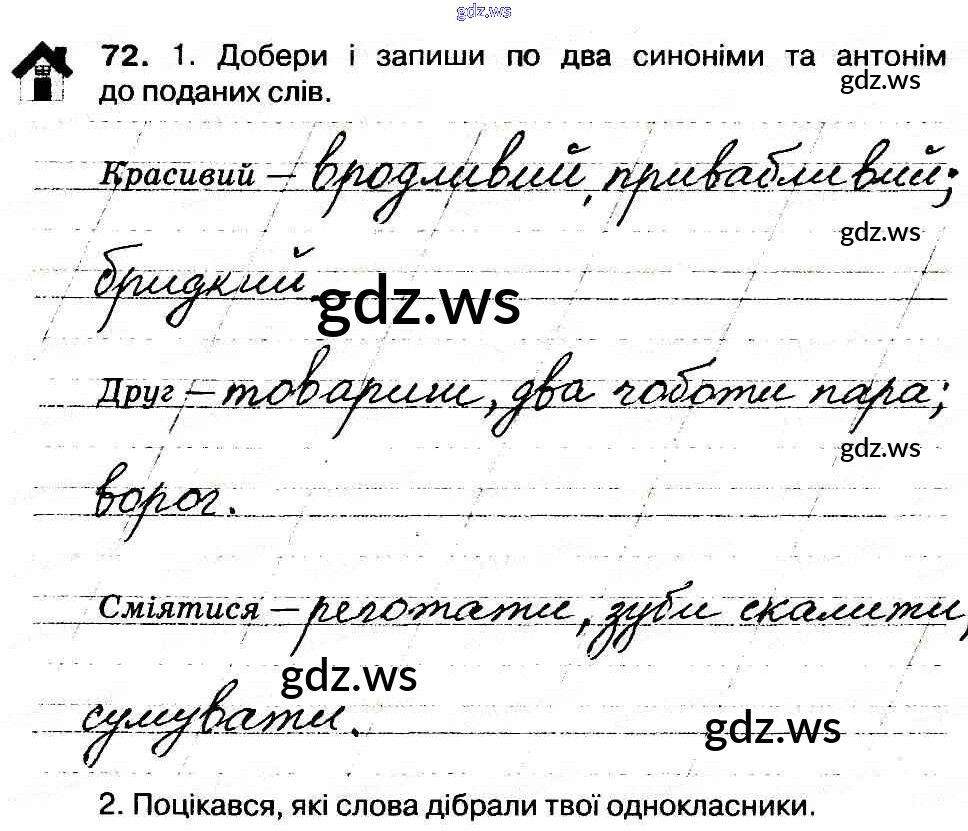 gdz.ws
72. 1. Добери і запиши по два синоніми та антонім
до поданих слів.
gdz.ws
Красивий – вродливий, привабливий;
gdz.ws
бридкий.
gdz.ws
Друг – товариш, два чоботи пара;
gdz.ws
ворог.
Сміятися – реготати, зуби скалити,
gdz.ws
сумувати.
gdz.ws
2. Поцікався, які слова дібрали твої однокласники.